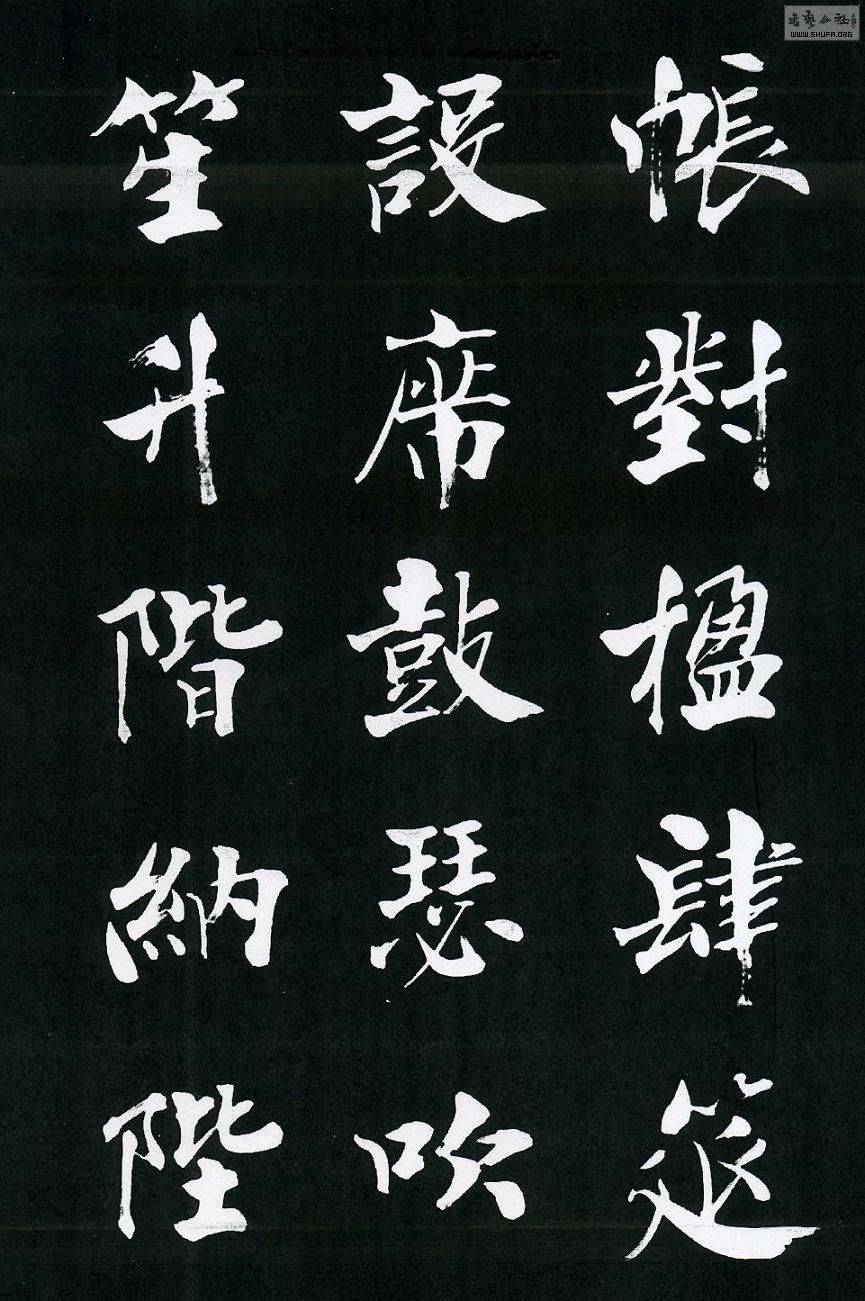 帳對楹肆筵
設席鼓瑟吹
笙升階納陛
WWW.SHUFA.ORG